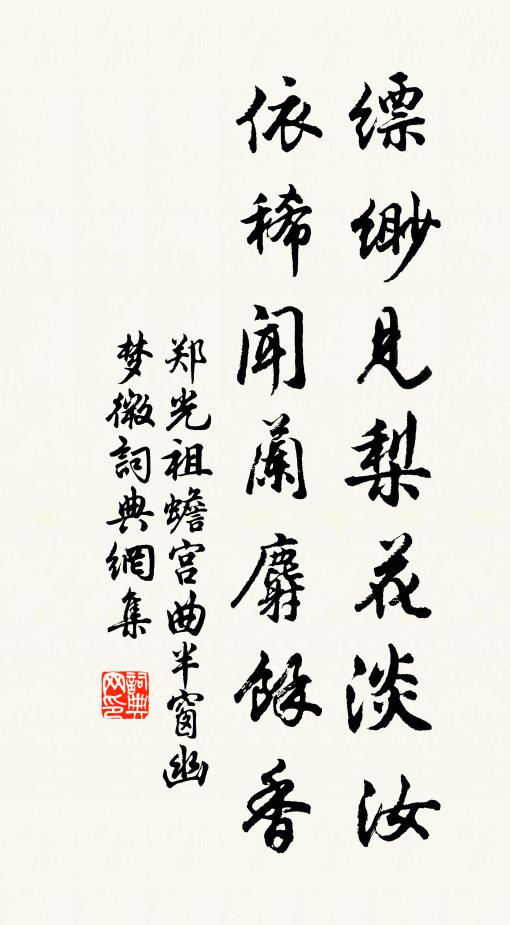 缥缈見梨花淡汝
依稀聞蘭麝餘香
郑光祖蟾宫曲半窗幽
梦微詞典網集
詞典网印